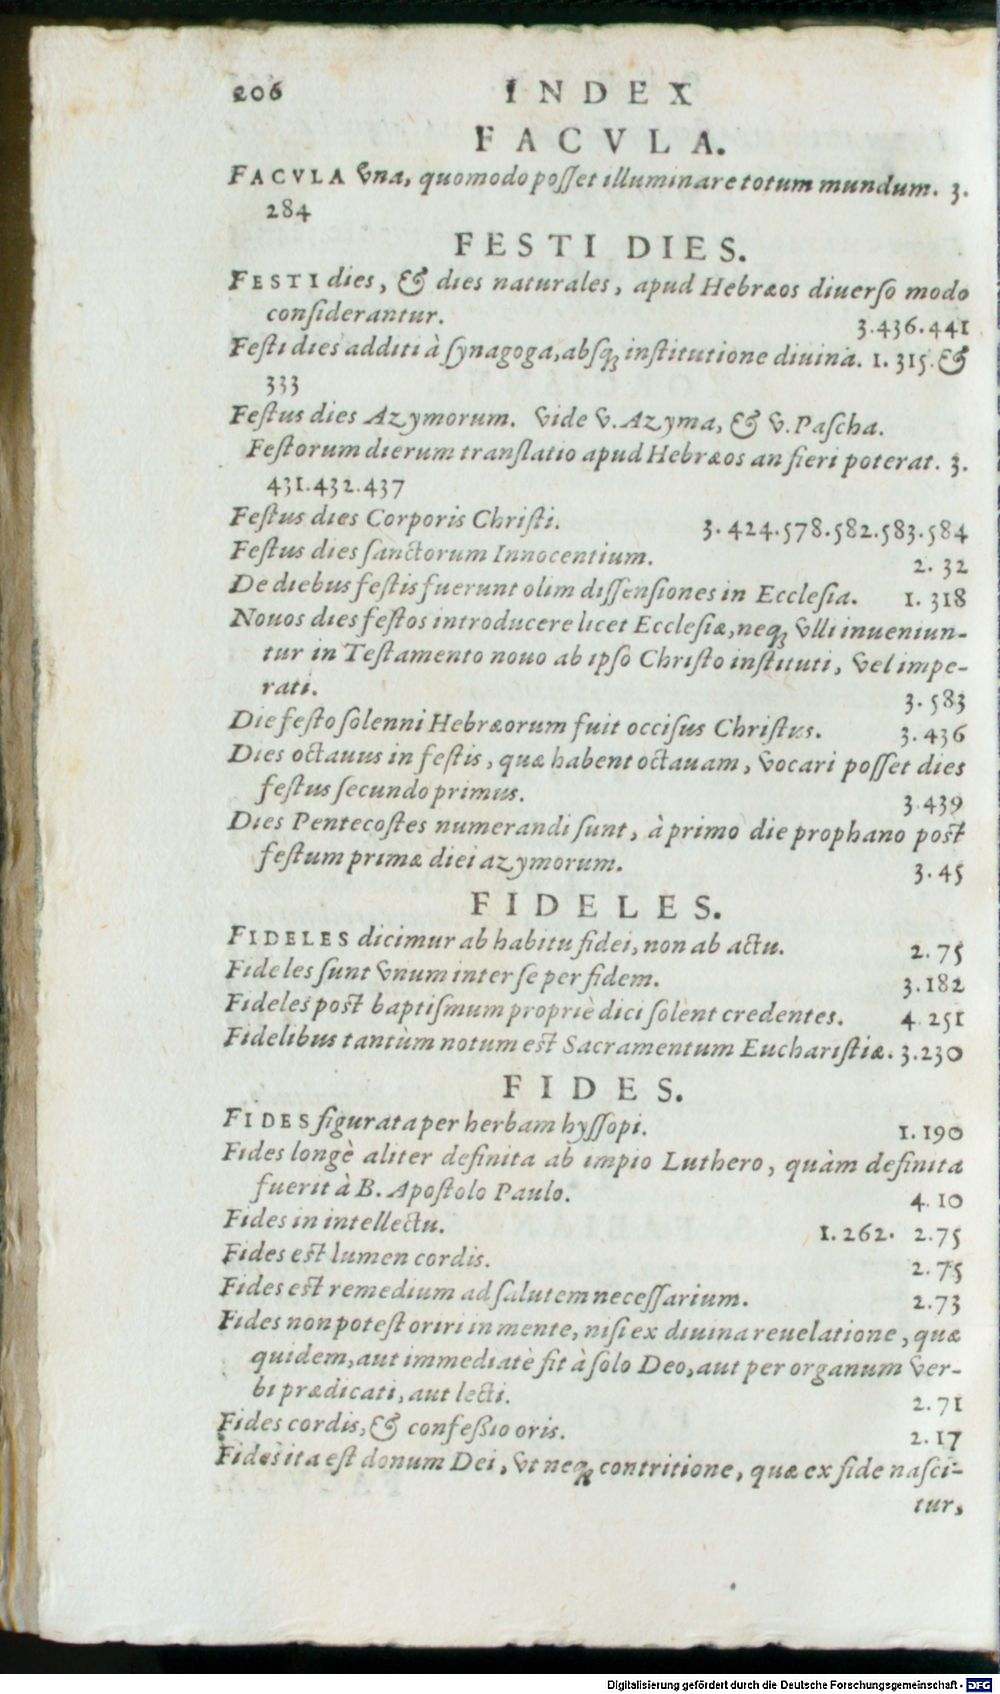 206 INDEX
FACVLA.
FACVLA vna, quomodo posset illuminare totum mundum. 3.
284
FESTI DIES.
FESTI dies, & dies naturales, apud Hebræos diuerso modo
considerantur. 3.436.441
Festi dies additi à synagoga, absq; institutione diuina. 1. 315. &
333
Festus dies Azymorum. Vide V. Azyma, & V. Pascha.
Festorum dierum translatio apud Hebræos an fieri poterat. 3.
431.432.437
Festus dies Corporis Christi. 3. 424.578.582.583.584
Festus dies sanctorum Innocentium. 2. 32
De diebus festis fuerunt olim dissensiones in Ecclesia. 1. 318
Nouos dies festos introducere licet Ecclesiæ, neq; vlli inueniun-
tur in Testamento nouo ab ipso Christo instituti, vel impe-
rati. 3. 583
Die festo solenni Hebræorum fuit occisus Christus. 3. 436
Dies octauus in festis, quæ habent octauam, vocari posset dies
festus secundo primus. 3 439
Dies Pentecostes numerandi sunt, à primo die prophano post
festum primæ diei azymorum. 3. 45
FIDELES.
FIDELES dicimur ab habitu fidei, non ab actu. 2. 75
Fideles sunt vnum inter se per fidem. 3.182
Fideles post baptismum propriè dici solent credentes. 4. 251
Fidelibus tantùm notum est Sacramentum Eucharistiæ. 3.230
FIDES.
FIDES figurata per herbam hyssopi. 1. 190
Fides longè aliter definita ab impio Luthero, quàm definita
fuerit à B. Apostolo Paulo. 4. 10
Fides in intellectu. 1. 262. 2. 75
Fides est lumen cordis. 2. 75
Fides est remedium ad salutem necessarium. 2. 73
Fides non potest oriri in mente, nisi ex diuina reuelatione, quæ
quidem, aut immediatè fit à solo Deo, aut per organum ver-
bi prædicati, aut lecti. 2. 71
Fides cordis, & confessio oris. 2. 17
Fides ita est donum Dei, vt neq; contritione, quæ ex fide nasci-
tur,
Digitalisierung gefördert durch die Deutsche Forschungsgemeinschaft - DFG